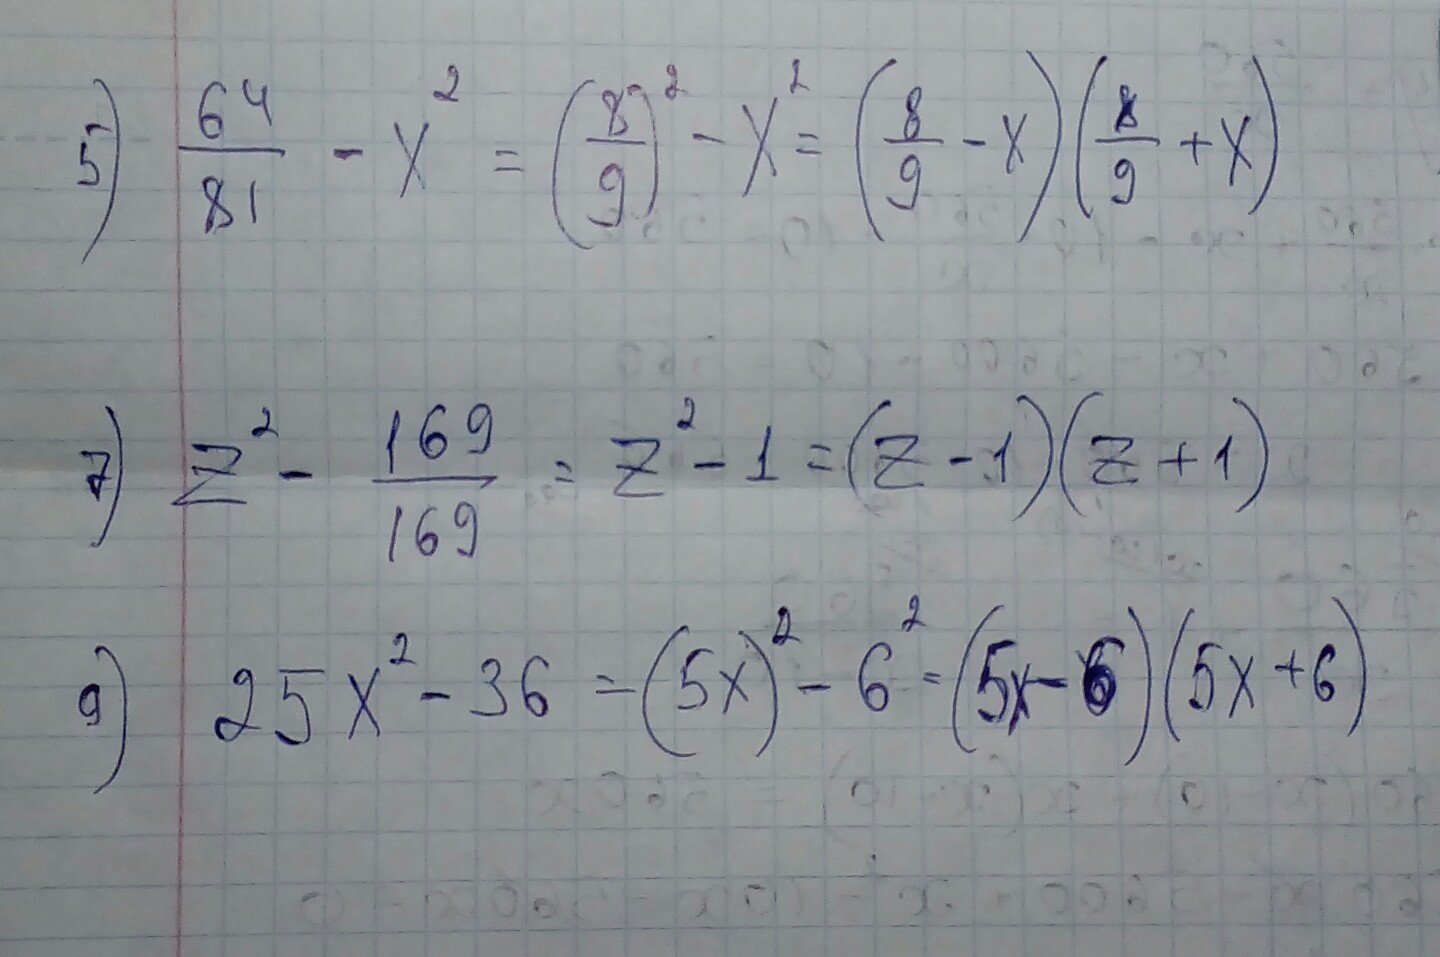 5) 64/81 - x² = (8/9)² - x² = (8/9 - x)(8/9 + x)
7) z² - 169/169 = z² - 1 = (z - 1)(z + 1)
9) 25x² - 36 = (5x)² - 6² = (5x - 6)(5x + 6)